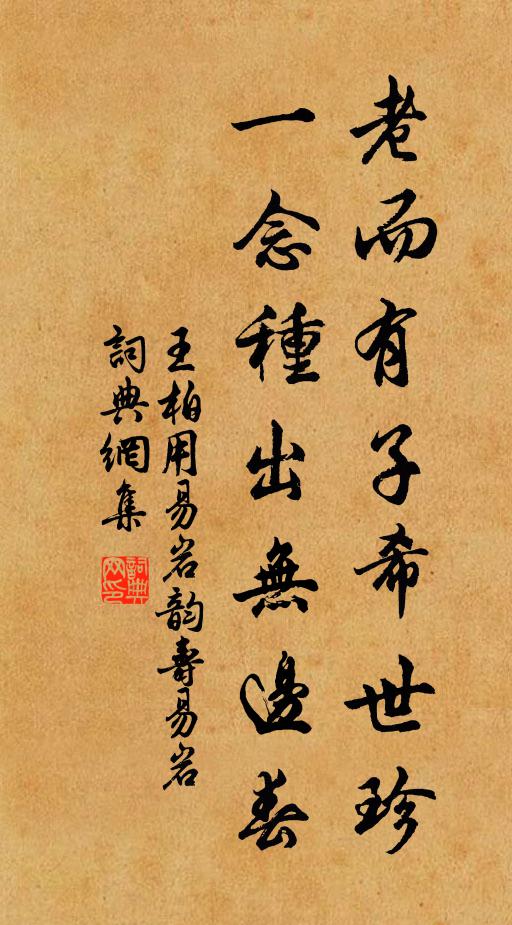 老而有子希世珍
一念種出無邊春
王柏用易岩韵壽易岩
詞典網集
詞典網印